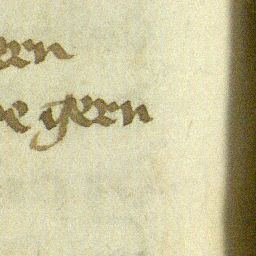 ern
e gern